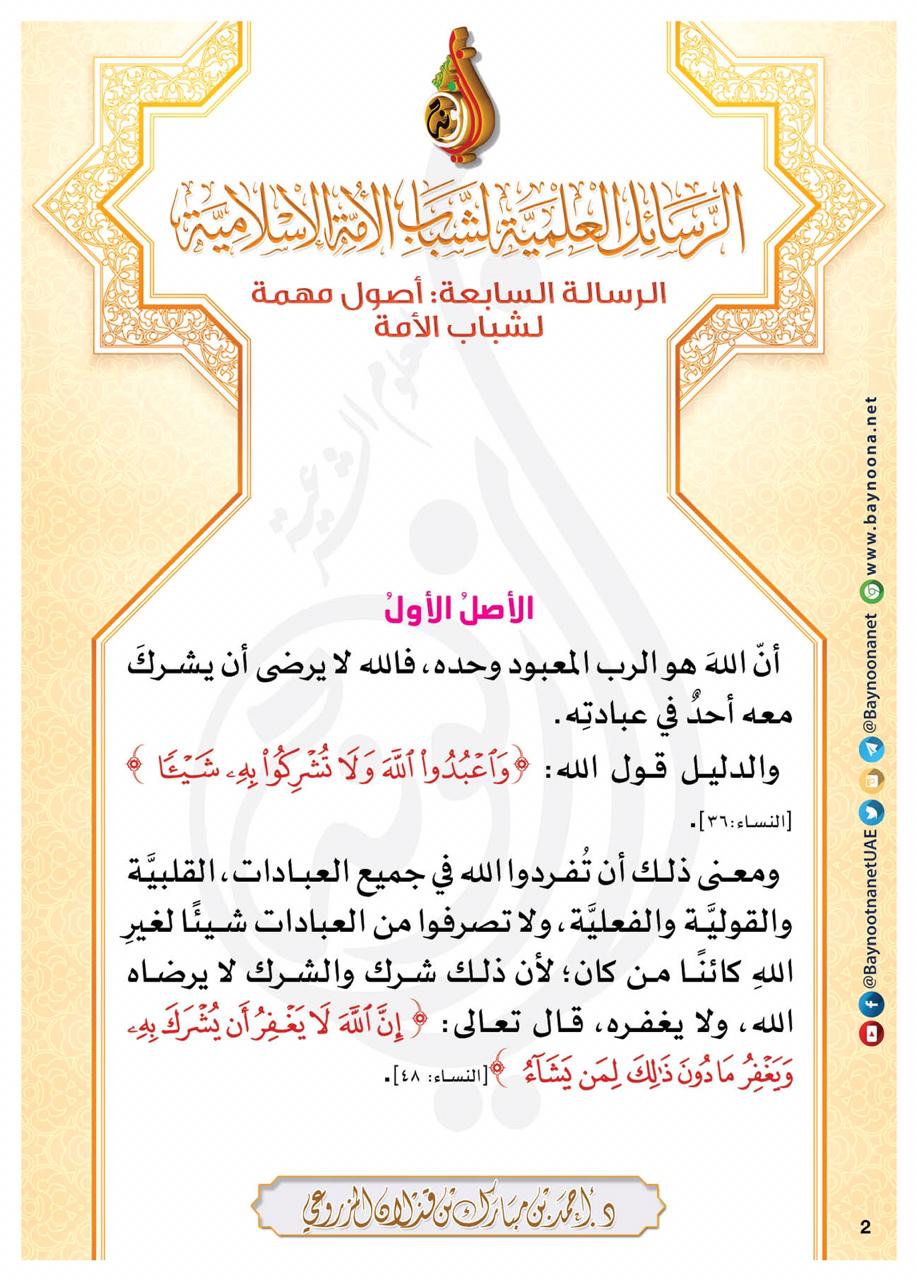 الرسائل العلمية لشباب الأمة الإسلامية
الرسالة السابعة: أصول مهمة
لشباب الأمة
الأصلُ الأولُ
أنّ اللهَ هو الرب المعبود وحده، فالله لا يرضى أن يشركَ
معه أحدٌ في عبادتِه.
والدليل قول الله: ﴿وَٱعۡبُدُواْ ٱللَّهَ وَلَا تُشۡرِكُواْ بِهِۦ شَيۡـٔٗا ﴾
[النساء:٣٦].
ومعنى ذلك أن تُفردوا الله في جميع العبادات، القلبيَّة
والقوليَّة والفعليَّة، ولا تصرفوا من العبادات شيئًا لغيرِ
اللهِ كائنًا من كان؛ لأن ذلك شرك والشرك لا يرضاه
الله، ولا يغفره، قال تعالى: ﴿ إِنَّ ٱللَّهَ لَا يَغۡفِرُ أَن يُشۡرَكَ بِهِۦ
وَيَغۡفِرُ مَا دُونَ ذَٰلِكَ لِمَن يَشَآءُ ﴾[النساء: ٤٨].
د. أحمد بن مبارك بن قذلان المزروعي
2
@BaynootnanetUAE @Baynoonanet www.baynoona.net
بينونة
للعلوم الشرعية